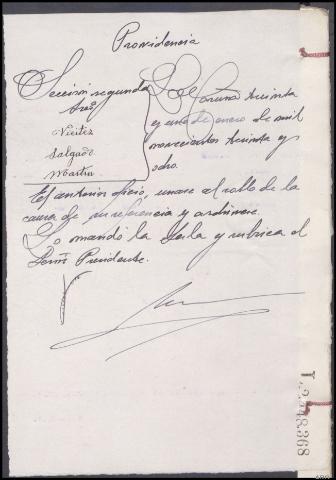 Providencia
Sección segunda
Sres
Vieitez
Salgado
Martin
La Coruña treinta
y uno de enero de mil
novecientos treinta y
ocho.
El anterior oficio, unase al rollo de la
causa de su referencia y archivese.
Lo mandó la Sala y rubrica el
Señor Presidente.